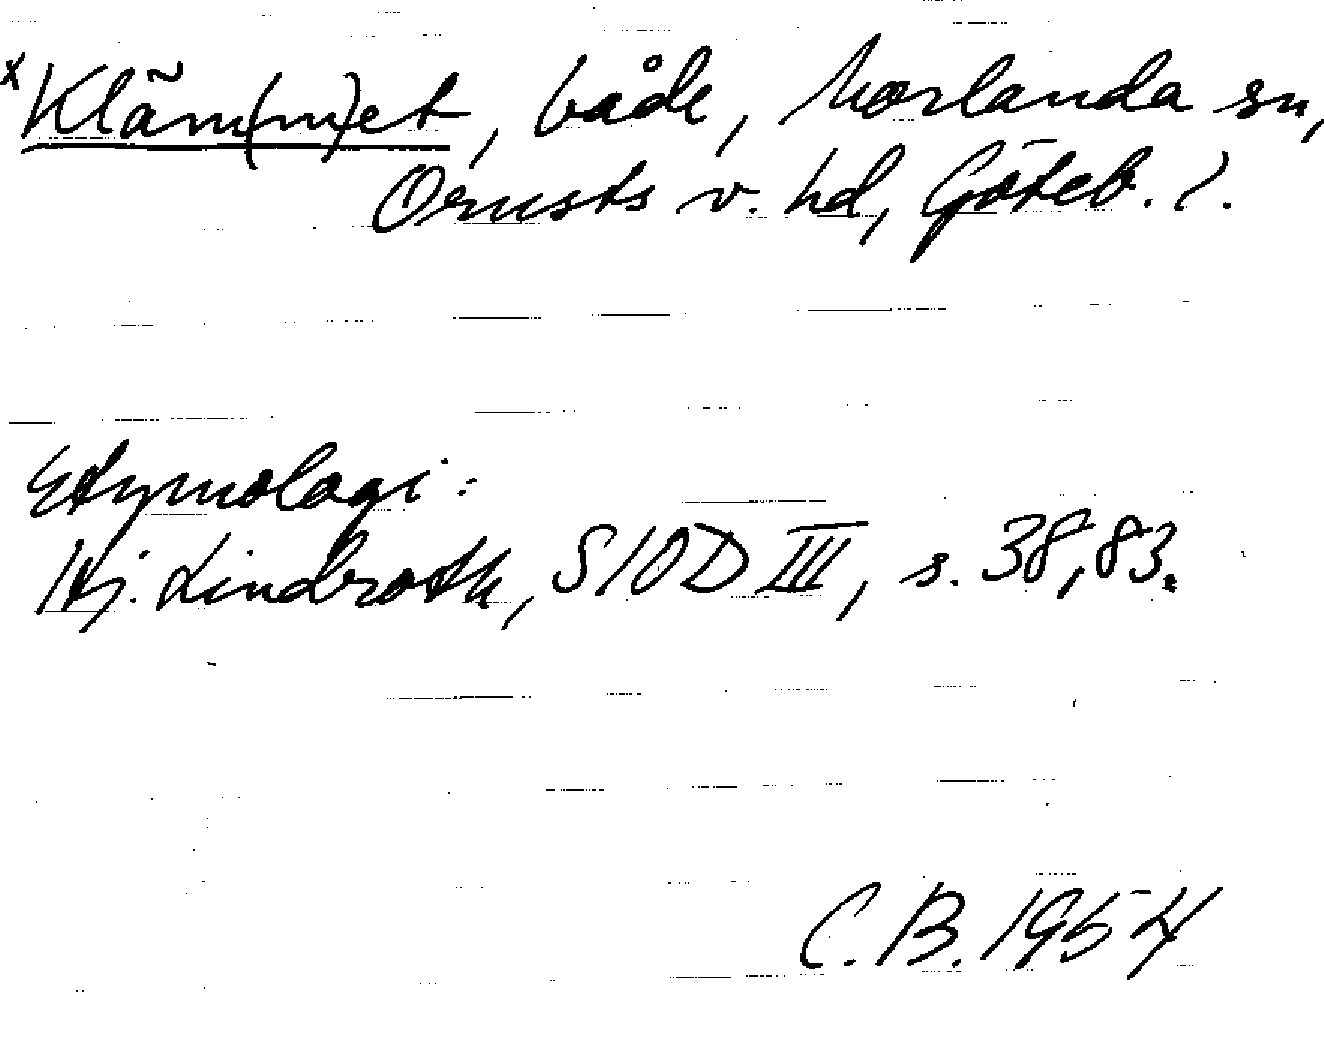 x Kläm(m)et, både, Morlanda sn,
Orusts v. hd, Göteb. l.
Etymologi:
Hj. Lindroth, SIOD III, s. 38, 83.
C.B. 1954